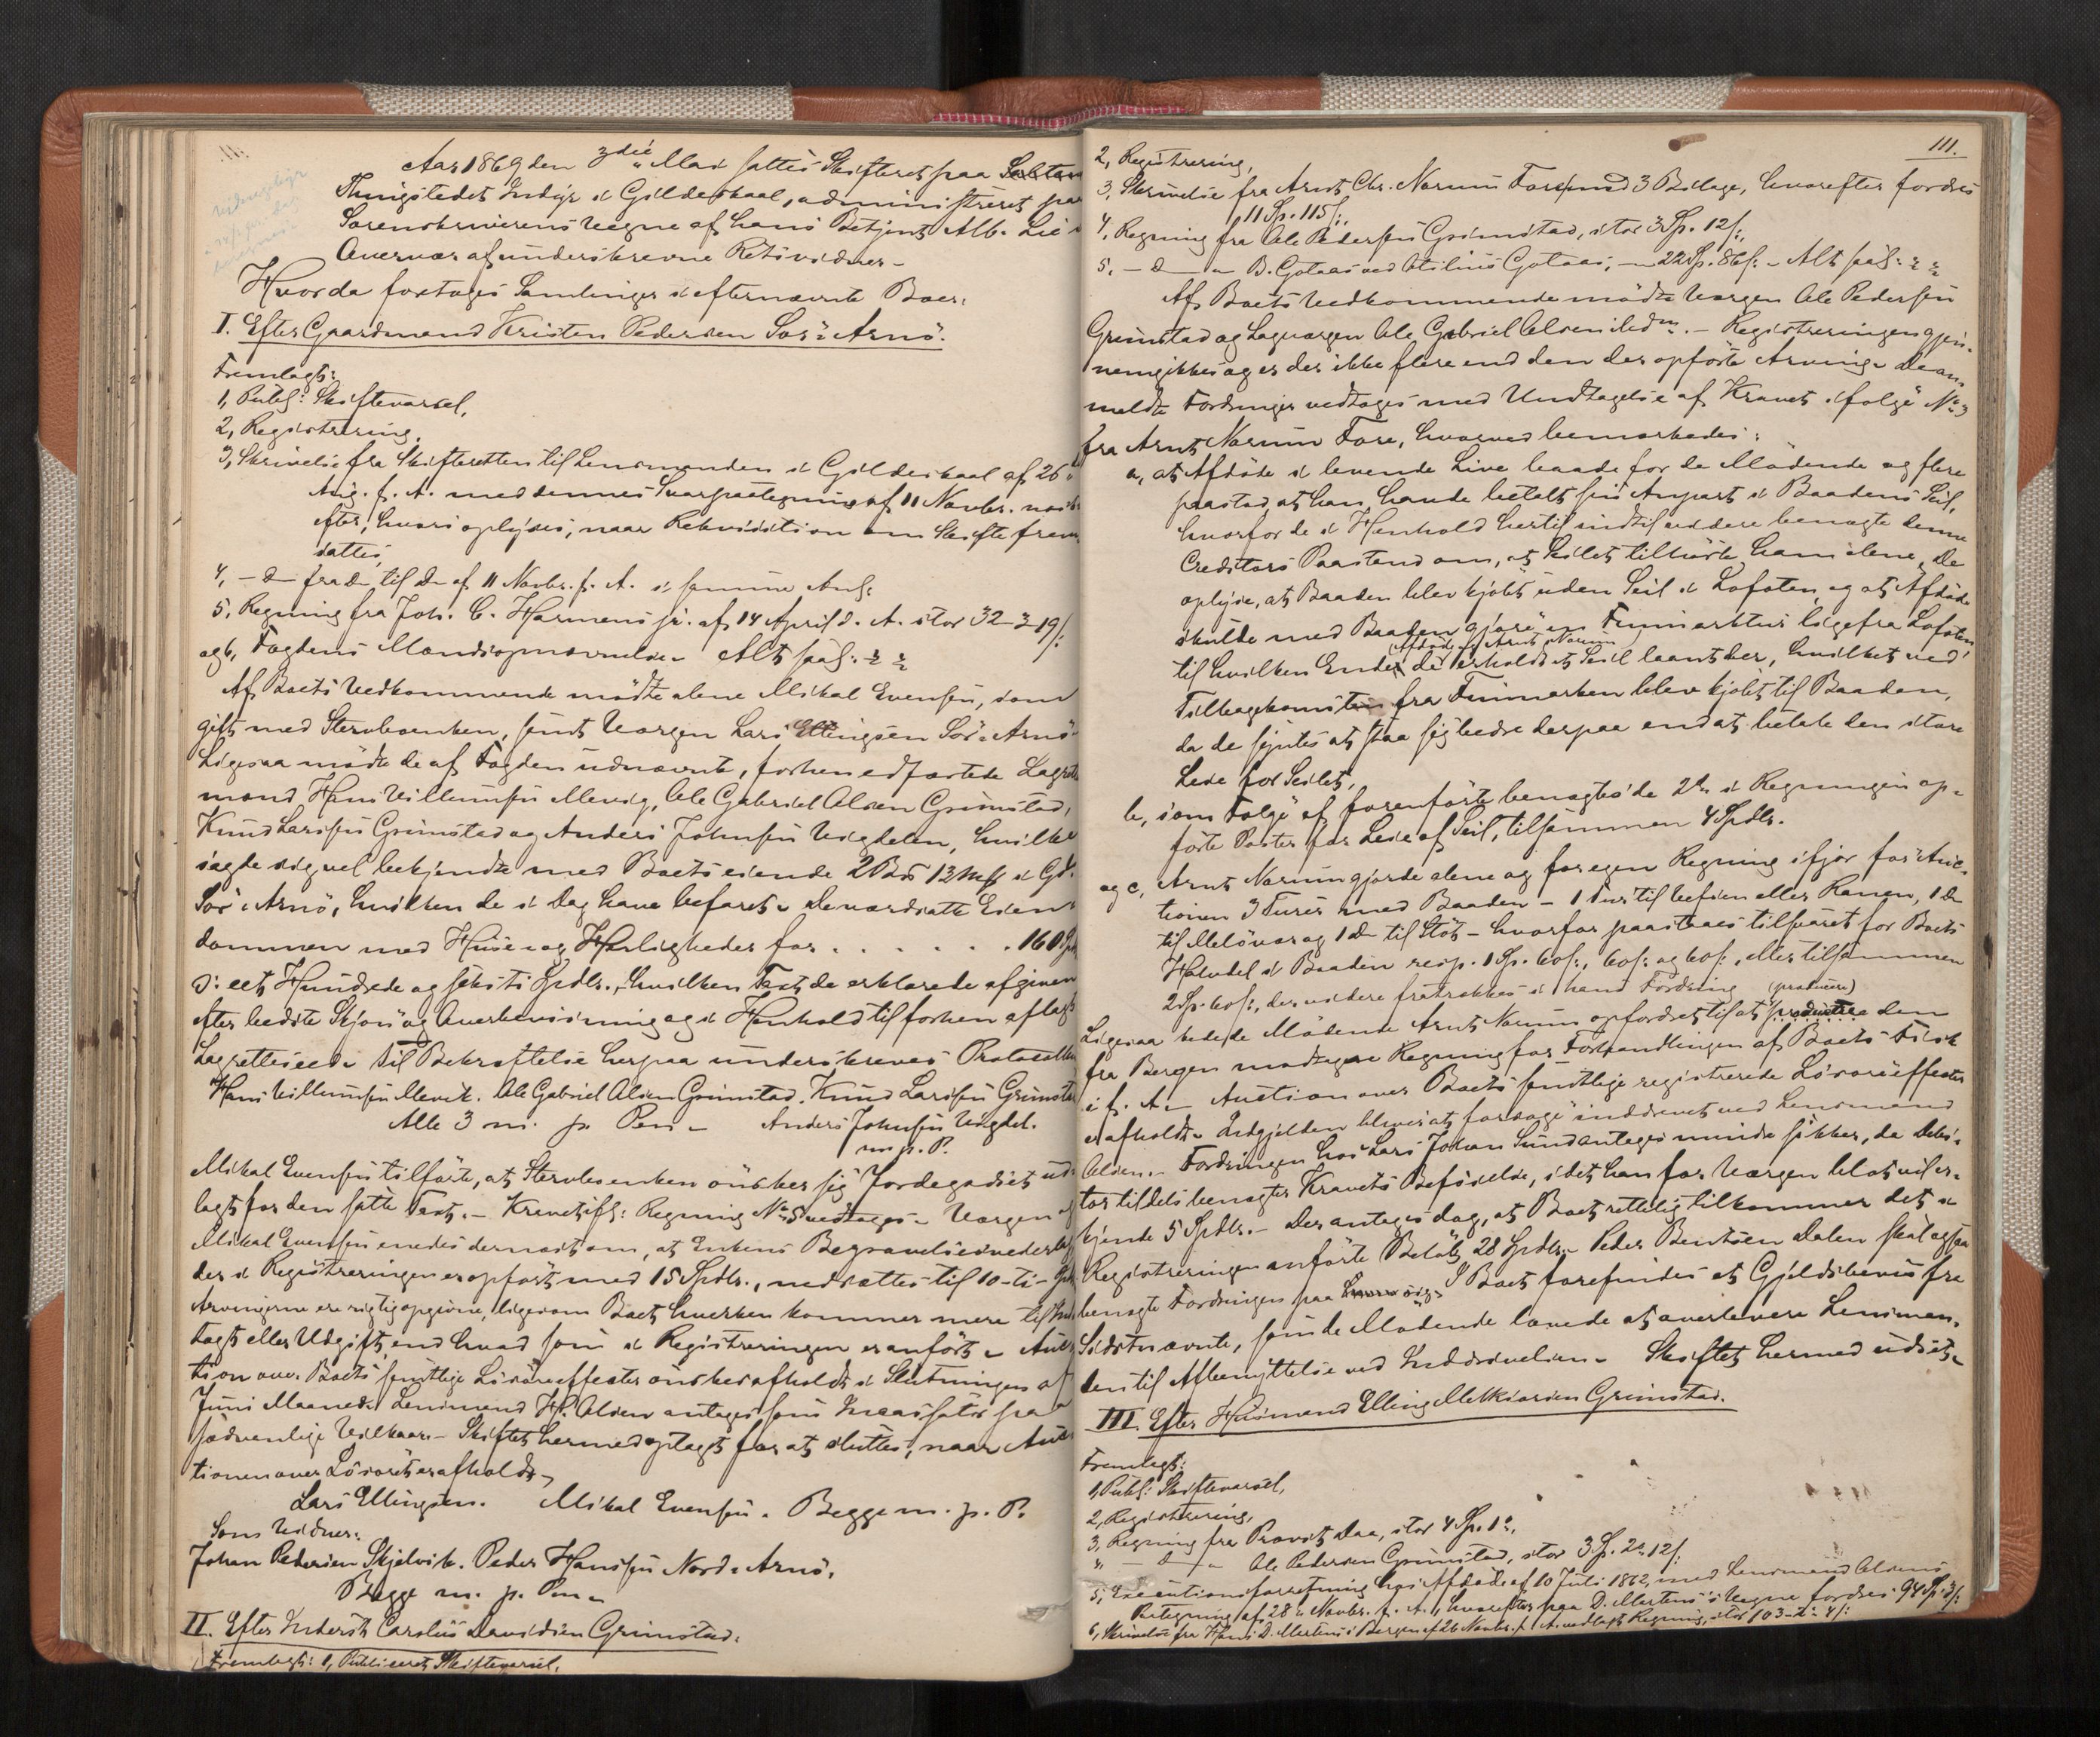 Aar 1869 den 3die Mai sattes Skifteret paa
Thingstedet Indyr i Gildeskaal, administreret paa
Sorenskriverens Vegne af hans Betjent Alb. Lie i
Overvær af underskrevne Retsvidner –
Hvorda foretoges Samlinger i efternævnte Boer:
I. Efter Gaardmand Kristen Pedersen Sør-Arnø.
Fremlagt:
1, Publ: Skiftevarsel,
2, Registrering,
3, Skrivelse fra Skifteretten til Lensmanden i Gildeskaal af 26
Aug. f. A. med dennes Svarpaategning af 11 Novbr. næst
efter, hvori oplyses, naar Rekvisition om Skifte frem-
sattes,
4, – D – fra Do til Do af 11 Novbr. f. A. i samme Anl:
5, Regning fra Joh. C. Harmens jr. af 14 April d. A. stor 32–3–19/:
og 6, Fogdens Mandsopnævnelse – Alt saal:
Af Boets Vedkommende mødte alene Mikal Evensen, som
gift med Stervboenken, samt Værgen Lars Ellingsen Sør-Arnø
Ligesaa mødte de af Fogden udnævnte, forhen edfæstede Lagrettes
mænd Hans Villumsen Mevig, Ole Gabriel Olsen Grimstad,
Knud Larssen Grimstad og Anders Johnsen Vigdelen, hvilke
sagde sig vel bekjendte med Boets eiende 2 Bd 12 Mk i Gd.
Sør-Arnø, hvilken de i Dag have befaret – De værdsatte Eien-
dommen med Huse og Herligheder for . . . . . . 160 Spd
ɔ: eet Hundrede og seksti Spdlr., hvilken Taxt de erklærede afgiven
efter bedste Skjøn og Overbevisning og i Henhold til forhen aflagt
Lagretteseed – Til Bekræftelse herpaa underskreves Protocollen
Hans Villumsen Mevik. Ole Gabriel Olsen Grimstad. Knud Larssen Grimstad
Alle 3 m. p. Pen – Anders Johnsen Vigdel.
m. p. P.
Mikal Evensen tilførte, at Stervboenken ønsker sig Jordegodset ud-
lagt for den satte Taxt. – Kravet ifl: Regning No 5 vedtoges – Værgen og
Mikal Evensen enedes dernæst om, at Enkens Begravelsesvederlag
der i Registreringen er opført med 15 Spdlr., nedsættes til 10 – ti – Spd
Arvingerne ere rigtig opgivne, ligesom Boet hverken kommer mere til Ind-
tægt eller Udgift, end hvad som i Registreringen er anført – Auc-
tion over Boets samtlige Løsøreeffecter ønskes afholdt i Slutningen af
Juni Maaned. Lensmand H. Olsen antages som Incassator paa
sædvanlige Vilkaar. – Skiftet hermed optaget for at sluttes, naar Auc-
tionen over Løsøret er afholdt –
Lars Ellingsen. Mikal Evensen. Begge m. p. P.
Som Vidner:
Johan Pedersen Skjelvik. Peder Hanssen Nord-Arnø.
Begge m. p. Pen –
II. Efter Inderst Carolus Davidsen Grimstad.
Fremlagt: 1, Publiceret Skiftevarsel,
111.
2, Registrering,
3, Skrivelse fra Arnt Chr. Normun Fore med 3 Bilage, hvorefter fordres
11 Sp. 115/:,
4, Regning fra Ole Pedersen Grimstad, stor 3 Sp. 12/:,
5, – D – B. Gotaas ved Otilius Gotaas, – 22 Sp. 86/: – Alt saal:
Af Boets Vedkommende mødte Værgen Ole Pedersen
Grimstad og Lagværgen Ole Gabriel Olsen ibid. – Registreringen gjen-
nemgikkes og er der ikke flere end den der opførte Arving – De an-
meldte Fordringer vedtoges med Undtagelse af Kravet ifølge No 3
fra Arnt Normun Fore, hvorved bemærkedes:
a, at Afdøde i levende Live baade for de Mødende og flere
paastod, at han havde betalt sin Anpart i Baadens Seil,
hvorfor de i Henhold hertil indtil videre benægte denne
Creditors Paastand om, at Seilet tilhørte ham alene. De
oplyse, at Baaden blev kjøbt uden Seil i Lofoten, og at Afdøde
skulde med Baaden gjøre en Finmarkstur ligefra Lofoten,
til hvilken Ende de (Afdøde og Arnt Normun) erholdt et Seil laant her, hvilket ved
Tilbagekomsten fra Finmarken blev kjøbt til Baaden,
da de syntes at staa sig bedre derpaa end at betale den store
Leie for Seilet,
b, som Følge af foranførte benægtes de 2de i Regningen op-
førte Poster for Leie af Seil, tilsammen 4 Spdlr.
og c, Arnt Normun gjorde alene og for egen Regning ifjor før Auc-
tionen 3 Turer med Baaden – 1 Tur til Vefsen eller Ranen, 1 Do
til Meløvær og 1 Do til Støt – hvorfor paastaaes tilsvaret for Boets
Halvdel i Baaden resp. 1 Sp. 60/:, 60/: og 60/:, eller tilsammen
2 Sp. 60/:, der videre fratrækkes i hans Fordring
Ligesaa bede de Mødende Arnt Normun opfordret til at producere (producere) den
fra Bergen modtagne Regning for Forhandlingen af Boets Fisk
i f. A. – Auction over Boets samtlige registrerede Løsøreeffecter
er afholdt – Indgjælden bliver at forsøge inddrevet ved Lensmand
Olsen. – Fordringen hos Lars Johan Sund antages mindre sikker, da Debi-
tor tildels benægter Kravets Beføielse, idet han for Værgen blot vil er-
kjende 5 Spdlr. – Der antages dog, at Boet rettelig tilkommer det i
Registreringen anførte Beløb, 28 Spdlr. – Peder Bentsen Dalen skal ogsaa
benægte Fordringen paa I Boet forefindes et Gjældsbevis fra
Sidstnævnte, som de Mødende lovede at overlevere Lensman-
den til Afbenyttelse ved Inddrivelsen – Skiftet hermed udsat –
III. Efter Husmand Elling Melkiorsen Grimstad.
Fremlagt:
1, Publ: Skiftevarsel,
2, Registrering,
3, Regning fra Provst Daa, stor 4 Sp. 1 o.,
4, – D – Ole Pedersen Grimstad, stor 3 Sp. 2 o. 12/:
5, Executionsforretning hos Afdøde af 10 Juli 1862, med Lensmand Olsens
Paategning af 28 Novbr. f. A., hvorefter paa D. Mertens's Vegne fordres 94 Sp. 3/:
6, Skrivelse fra Hans D. Mertens i Bergen af 26 Novbr. f. A. vedlagt Regning, stor 103–2–4/: